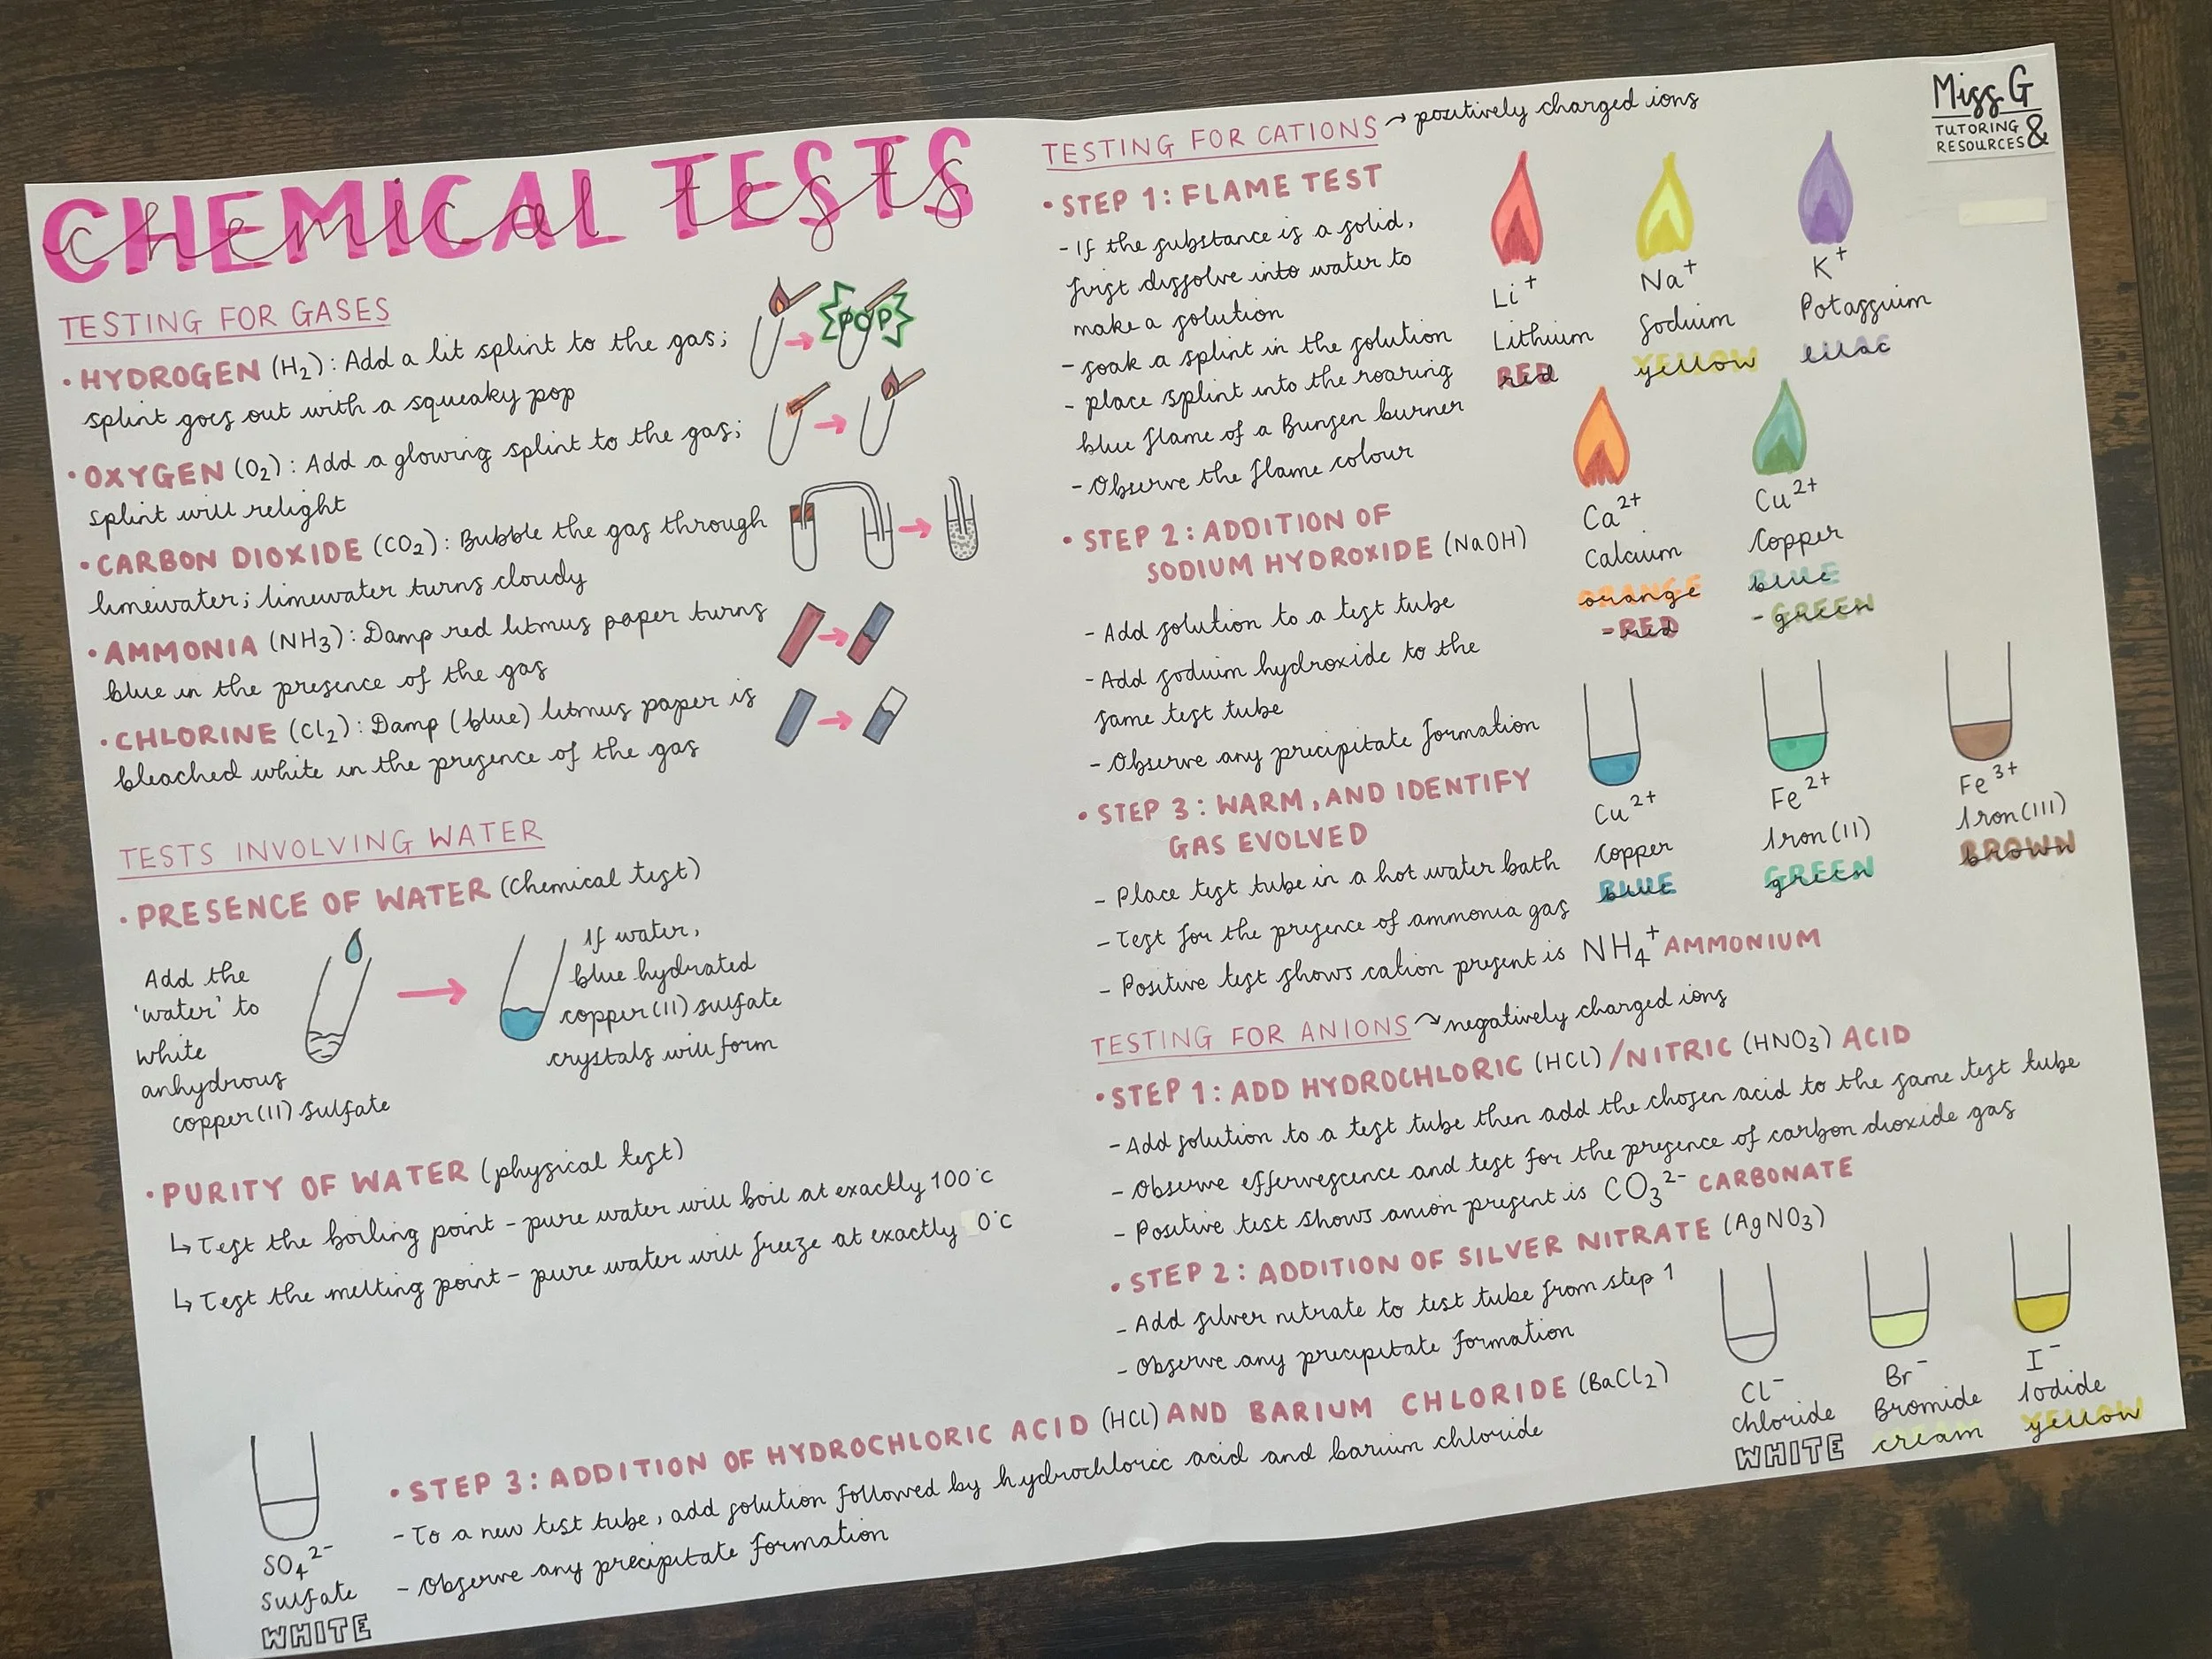 CHEMICAL TESTS
chemical tests
TESTING FOR GASES
• HYDROGEN (H2): Add a lit splint to the gas;
splint goes out with a squeaky pop
POP
• OXYGEN (O2): Add a glowing splint to the gas;
splint will relight
• CARBON DIOXIDE (CO2): Bubble the gas through
limewater; limewater turns cloudy
• AMMONIA (NH3): Damp red litmus paper turns
blue in the presence of the gas
• CHLORINE (Cl2): Damp (blue) litmus paper is
bleached white in the presence of the gas
TESTS INVOLVING WATER
• PRESENCE OF WATER (chemical test)
Add the
'water' to
white
anhydrous
copper(II) sulfate
If water,
blue hydrated
copper(II) sulfate
crystals will form
• PURITY OF WATER (physical test)
↳ Test the boiling point - pure water will boil at exactly 100°C
↳ Test the melting point - pure water will freeze at exactly 0°C
TESTING FOR CATIONS → positively charged ions
• STEP 1: FLAME TEST
- If the substance is a solid,
first dissolve into water to
make a solution
- soak a splint in the solution
- place splint into the roaring
blue flame of a Bunsen burner
- Observe the flame colour
Li+
Lithium
RED
red
Na+
Sodium
YELLOW
yellow
K+
Potassium
LILAC
lilac
Ca2+
Calcium
ORANGE
orange
-RED
-red
Cu2+
Copper
BLUE
blue
-GREEN
-green
• STEP 2: ADDITION OF
SODIUM HYDROXIDE (NaOH)
- Add solution to a test tube
- Add sodium hydroxide to the
same test tube
- Observe any precipitate formation
Cu2+
Copper
BLUE
blue
Fe2+
Iron(II)
GREEN
green
Fe3+
Iron(III)
BROWN
brown
• STEP 3: WARM, AND IDENTIFY
GAS EVOLVED
- Place test tube in a hot water bath
- Test for the presence of ammonia gas
- Positive test shows cation present is NH4+ AMMONIUM
TESTING FOR ANIONS → negatively charged ions
• STEP 1: ADD HYDROCHLORIC (HCl) / NITRIC (HNO3) ACID
- Add solution to a test tube then add the chosen acid to the same test tube
- Observe effervescence and test for the presence of carbon dioxide gas
- Positive test shows anion present is CO3 2- CARBONATE
• STEP 2: ADDITION OF SILVER NITRATE (AgNO3)
- Add silver nitrate to test tube from step 1
- Observe any precipitate formation
Cl-
Chloride
WHITE
Br-
Bromide
cream
I-
Iodide
YELLOW
yellow
• STEP 3: ADDITION OF HYDROCHLORIC ACID (HCl) AND BARIUM CHLORIDE (BaCl2)
- To a new test tube, add solution followed by hydrochloric acid and barium chloride
- Observe any precipitate formation
SO4 2-
Sulfate
WHITE
Miss G
TUTORING &
RESOURCES